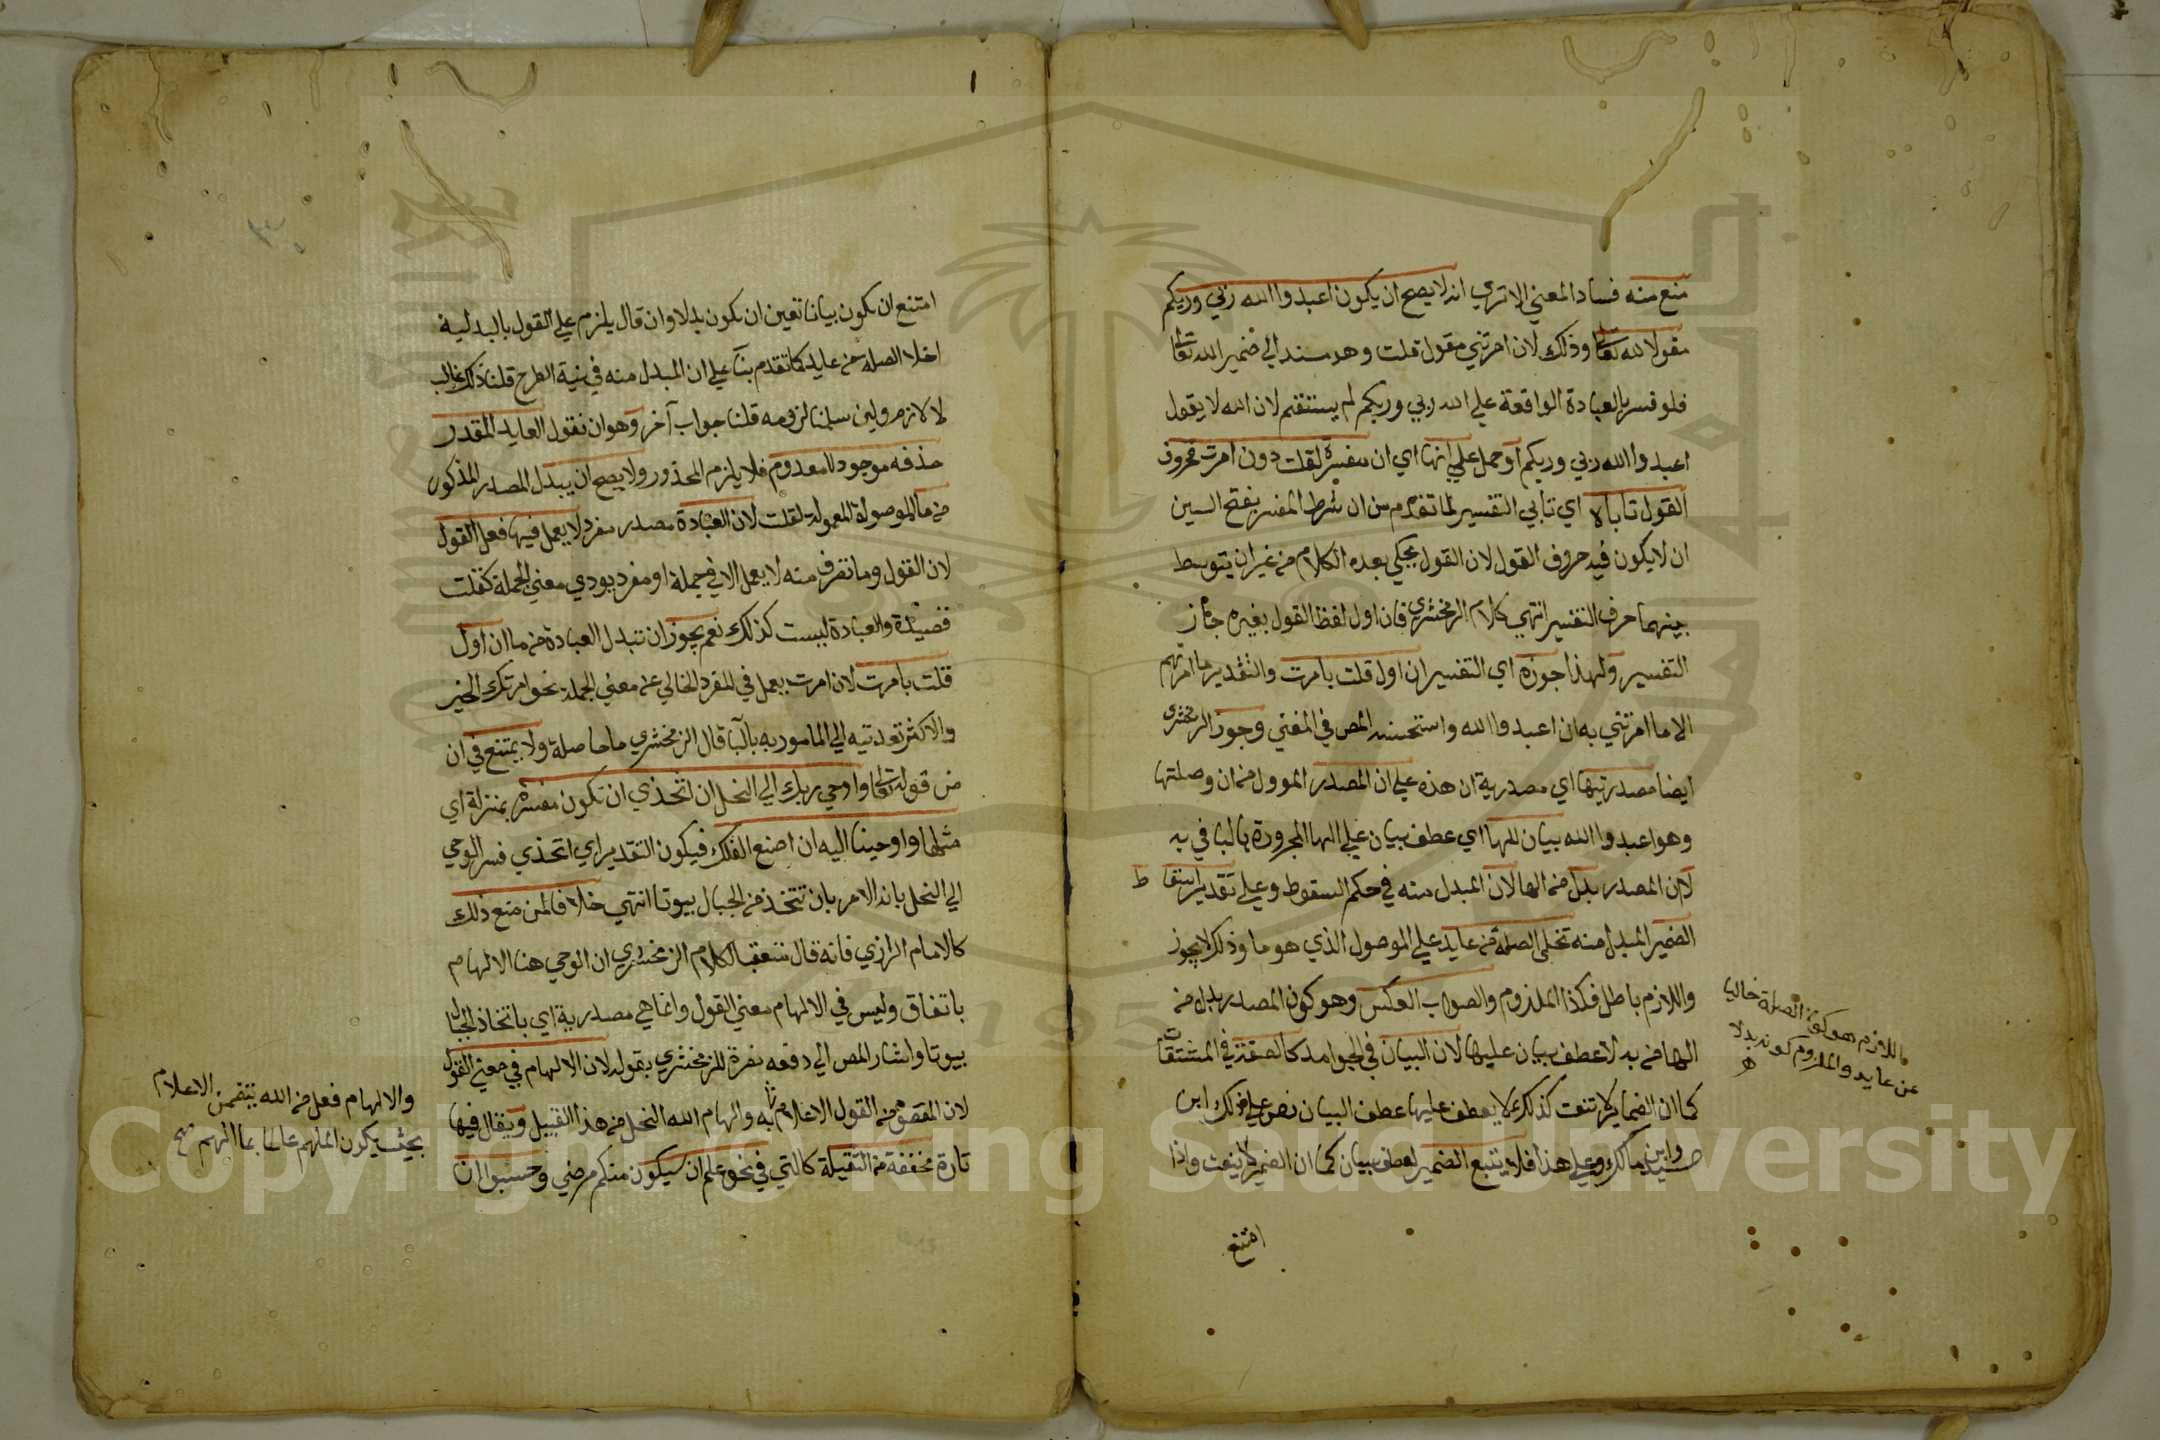 منع منه فساد المعني الا تري انه لا يصح ان يكون اعبدوا الله ربي وربكم
مقولا لله تعالي وذلك لان امرتني مقول قلت وهو مسند الي ضمير الله تعالي
فلو فسر بالعبادة الواقعة علي الله ربي وربكم لم يستقم لان الله لا يقول
اعبدوا الله ربي وربكم او حمل علي انها اي ان مفسرة لقلت دون امرت فحروف
القول تاباه اي تابي التفسير لما تقدم من ان شرط المفسر بفتح السين
ان لا يكون فيه حروف القول لان القول يحكي بعده الكلام من غير ان يتوسط
بينهما حرف التفسير انتهي كلام الزمخشري فان اول لفظ القول بغيره جاز
التفسير ولهذا جوزه اي التفسير ان اول قلت بامرت والتقدير ما امرتهم
الا ما امرتني به ان اعبدوا الله واستحسنه المص في المغني وجوز الزمخشري
ايضا مصدريتها اي مصدرية ان هذه علي ان المصدر الموول من ان وصلتها
وهو اعبدوا الله بيان للها اي عطف بيان علي الها المجرورة بالبا في به
لان المصدر بدل من الها لان المبدل منه في حكم السقوط وعلي تقدير اسقا ط
الضمير المبدل منه تخلي الصلة من عايد علي الموصول الذي هو ما وذلك لا يجوز
واللازم باطل فكذا الملزوم والصواب العكس وهو كون المصدر بدل من
الها من به لا عطف بيان عليها لان البيان في الجوامد كالصفة في المشتقات
كما ان الضماير لا تنعت كذلك لا يعطف عليها عطف البيان نص علي ذلك ابن
السيد وابن مالك وعلي هذا فلا يتبع الضمير لعطف بيان كما ان الضمير لا ينعت واذا
امتنع
واللازم هو كون الصلة خاليا
عن عايد والملزوم كونه بدلا
ه
١
امتنع ان يكون بيانا تعين ان يكون بدلا وان قال يلزم علي القول بالبدلية
اخلا الصلة من عايد كما تقدم بنآ علي ان المبدل منه في نية الطرح قلنا ذلك غالب
لا لازم ولين سلمنا لزومه قلنا جواب آخر وهو ان نقول العايد المقدر
حذفه موجود لا معدوم فلا يلزم المحذور ولا يصح ان يبدل المصدر المذكور
من ما الموصولة المعمولة لقلت لان العبادة مصدر مفرد لا يعمل فيها فعل القول
لان القول وما تفرف منه لا يعمل الا في جملة او مفرد يودي معني الجملة كقلت
قصيدة والعبادة ليست كذلك نعم يجوز ان تبدل العبادة من ما ان اول
قلت بامرت لان امرت يعمل في المفرد الخالي عن معني الجملة نحو امرتك الخير
والاكثر تعديته الي المامور به بالبآ قال الزمخشري ما حاصله ولا يمتنع في ان
من قوله تعالي واوحي ربك الي النحل ان اتخذي ان تكون مفسرة بمنزلة اي
مثلها واوحينا اليه ان اصنع الفلك فيكون التقدير اي اتخذي فسر الوحي
الي النحل بانه الامر بان تتخذ من الجبال بيوتا انتهي خلافا لمن منع ذلك
كالامام الرازي فانه قال متعقبا لكلام الزمخشري ان الوحي هنا الالهام
باتفاق وليس في الالهام معني القول وانما هي مصدرية اي باتخاذ الجبال
بيوتا واشار المص الي دفعه نصرة للزمخشري بقوله لان الالهام في معني القول
لان المقصود من القول الاعلام به والهام الله النحل من هذا القبيل ويقال فيها
تارة مخففة من الثقيلة كالتي في نحو علم ان سيكون منكم مرضي وحسبوا ان
والالهام فعل من الله يتضمن الاعلام
بحيث يكون الملهم عالما بما الهم صح
Copyright © King Saud University
1957